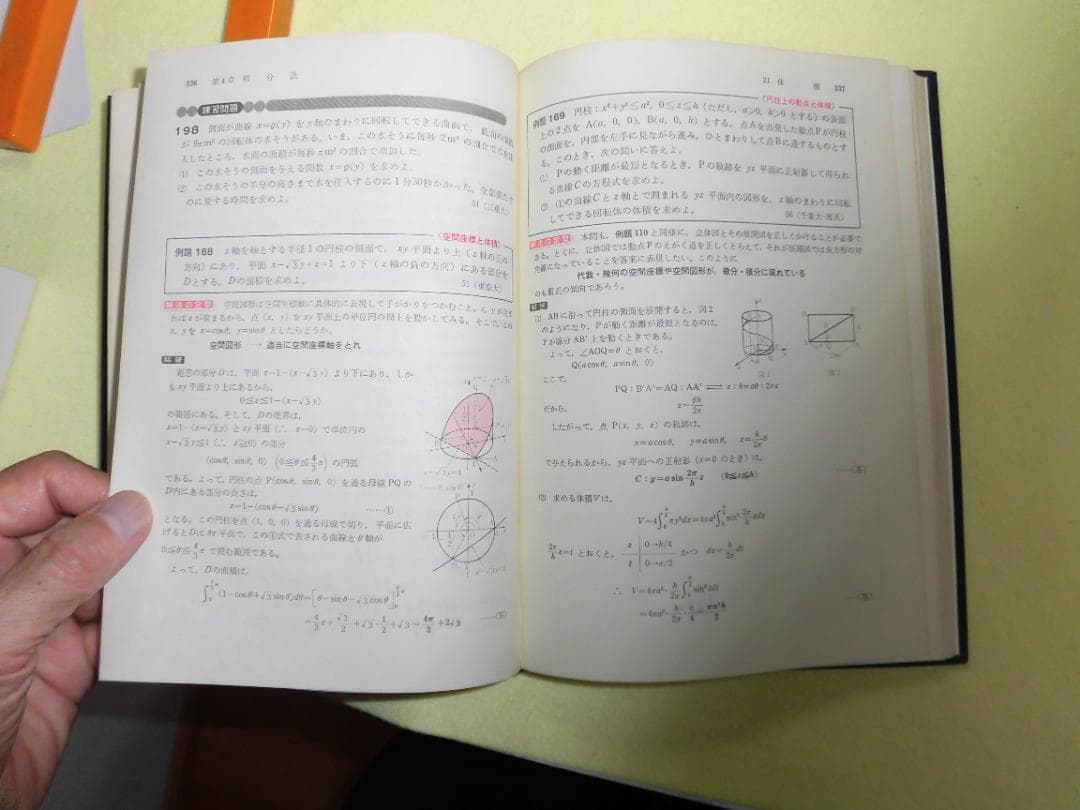 336 第4章 積分法
練習問題
198 側面が曲線 x=g(y) を y 軸のまわりに回転してできる曲面で，底面の面積
が 9πm² の回転体の水そうがある．いま，この水そうに毎秒 2m³ の割合で水を注
入したところ，水面の面積が毎秒 πm² の割合で増加した．
(1) この水そうの側面を与える関数 x=g(y) を求めよ．
(2) この水そうの半分の高さまで水を注入するのに1分30秒かかった．全部満たす
のに要する時間を求めよ．
51
〈空間座標と体積〉
例題 168 z軸を軸とする半径1の円柱の側面で，xy 平面より上 (z 軸の正の
方向) にあり，平面 x−√3y+z=1 より下 (z 軸の負の方向) にある部分を
Dとする．Dの面積を求めよ．
51 (東京大)
解法の定石 空間図形は空間座標軸に具体的に表現して手がかりをつかむこと．x, y が定ま
ればzが定まるから，点(x, y)をxy平面上の単位円の周上を動かしてみる．そこで，この
x, y を x=cosθ, y=sinθ としたらどうか．
空間図形 → 適当に空間座標軸をとれ
解答
題意の部分 D は，平面 z=1−(x−√3y) より下にあり，しか
も xy 平面より上にあるから，
0≦z≦1−(x−√3y)
の範囲にある．そして，Dの境界は，
z=1−(x−√3y) と xy 平面 (∴ z=0) で単位円の
x−√3y≦1 (∵ z≧0) の部分
(cosθ, sinθ, 0) (0≦θ≦4/3π) の円弧
である．よって，円柱の点 P(cosθ, sinθ, 0) を通る母線 PQ の
D内にある部分の長さは，
z=1−(cosθ−√3sinθ) ……①
となる．この円柱を点 (1, 0, 0) を通る母線で切り，平面に広
げるとDはθz平面で，この①式で表される曲線とθ軸が
0≦θ≦4/3π で囲む範囲である．
よって，Dの面積は，
∫₀^{4/3π}(1−cosθ+√3sinθ)dθ=[θ−sinθ−√3cosθ]₀^{4/3π}
=4/3π+√3/2+√3・1/2+√3=4π/3+2√3 ……(答)
21 体積 337
〈円柱上の動点と体積〉
例題 169 円柱：x²+y²≦a², 0≦z≦h (ただし，a>0, h>0 とする) の表面
上の2点を A(a, 0, 0), B(a, 0, h) とする．点Aを出発した動点Pが円柱
の側面を，内部を左手に見ながら進み，ひとまわりして点Bに達するものとす
る．このとき，次の問いに答えよ．
(1) P の動く距離が最短となるとき，Pの軌跡を yz 平面に正射影して得られ
る曲線Cの方程式を求めよ．
(2) (1)の曲線Cとz軸とで囲まれる yz 平面内の図形を，z軸のまわりに回転
してできる回転体の体積を求めよ．
56
解法の定石 本問も，例題110と同様に，立体図とその展開図を正しくかけることが必要で
ある．とくに，立体図では動点Pのえがく道を正しくとらえて，それが展開図では長方形の対
角線になっていることを答案に表現したい．このように
代数・幾何の空間座標や空間図形が，微分・積分に現れている
のも最近の傾向であろう．
解答
(1) ABに沿って円柱の側面を展開すると，図2
のようになり，Pが動く距離が最短となるのは，
Pが線分AB′上を動くときである．
よって，∠AOQ=θ とおくと，
Q(acosθ, asinθ, 0)
図1
図2
ここで，
PQ : B′A′=AQ : AA′ ⇄ z : h=aθ : 2πa
だから，
z=θh/2π
したがって，点 P(x, y, z) の軌跡は，
x=acosθ, y=asinθ, z=h/2πθ
で与えられるから，yz 平面への正射影 (x=0 のとき) は，
C : y=asin 2π/h z (0≦z≦h) ……(答)
(2) 求める体積Vは，
V=4∫₀^{h/4}πy²dz=4πa²∫₀^{h/4}sin² 2π/h z dz
2π/h z=t とおくと，
z 0→h/4
t 0→π/2
かつ dz=h/2π dt
∴ V=4πa²・h/2π∫₀^{π/2}sin²tdt
=4πa²・h/2π・π/4=πa²h/2 ……(答)